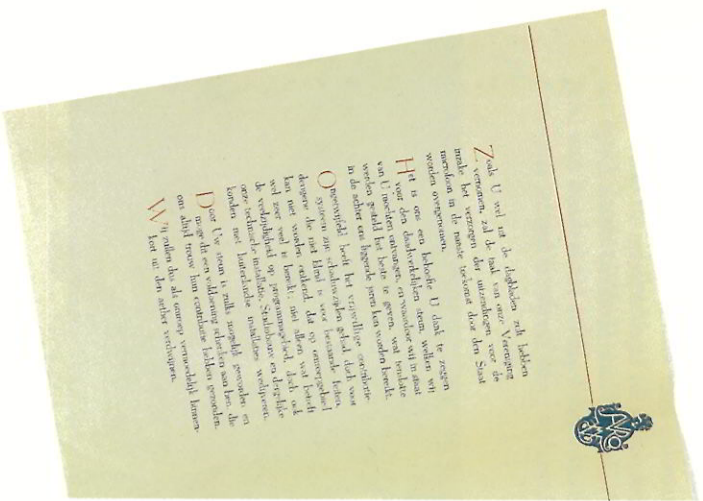 Zoals U wel uit de dagbladen zult hebben
vernomen, zal de taak van onze Vereeniging
inzake het verzorgen der uitzendingen voor de
microfoon in de naaste toekomst door den Staat
worden overgenomen.
Het is ons een behoefte U dank te zeggen
voor den daadwerkelijken steun, welken wij
van U mochten ontvangen, en waardoor wij in staat
werden gesteld het beste te geven, wat tenslotte
in de achter ons liggende jaren kon worden bereikt.
Ongetwijfeld heeft het vrijwillige contributie
systeem zijn schaduwzijden gehad, doch voor
dengene die niet blind is voor bestaande feiten,
kan niet worden ontkend, dat op omroepgebied
wel zeer veel is bereikt; niet alleen wat betreft
de veelzijdigheid op programmagebied, doch ook
onze technische installatie, Studiobouw en dergelijke
konden met buitenlandsche installaties wedijveren.
Door Uw steun is zulks mogelijk geworden en
moge dit een voldoening schenken aan hen, die
ons altijd trouw hun contributie hebben gezonden.
Wij zullen dus als omroep vermoedelijk binnen-
kort uit den aether verdwijnen.
AVRO